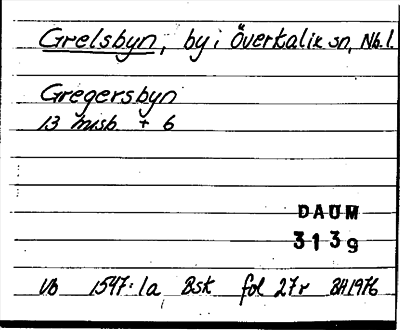 Grelsbyn, by i Överkalix sn, Nb. l.
Gregersbyn
13 misb. + 6
DAUM
3139
VB 1547:1a Bsk fol 27r BH 1976